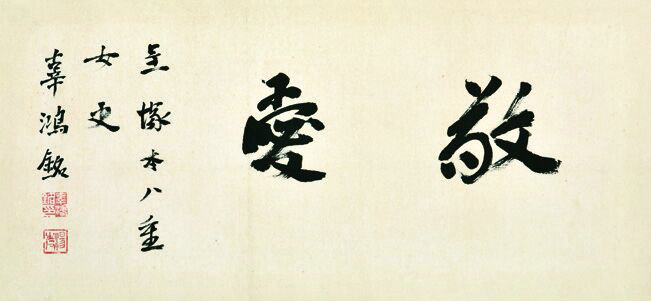 敬愛
呈塚本八重
女史
辜鴻銘